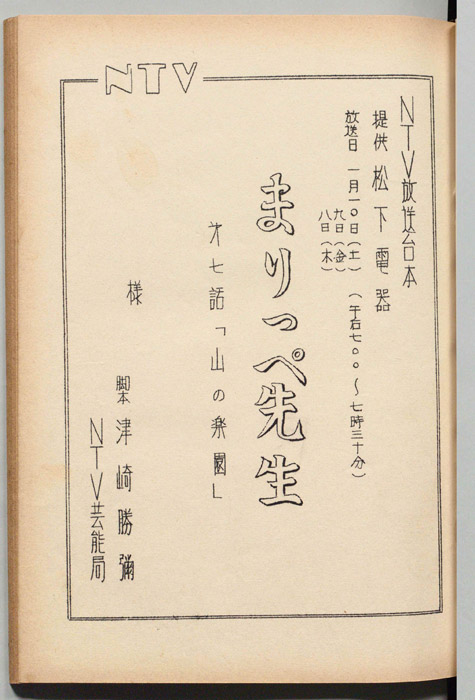 NTV
NTV放送台本
提供 松下電器
放送日 一月一〇日(土) (午后七〇〇〜七時三十分)
九日(金)
八日(木)
まりっぺ先生
才七話「山の楽園」
様
脚本 津崎勝彌
NTV芸能局